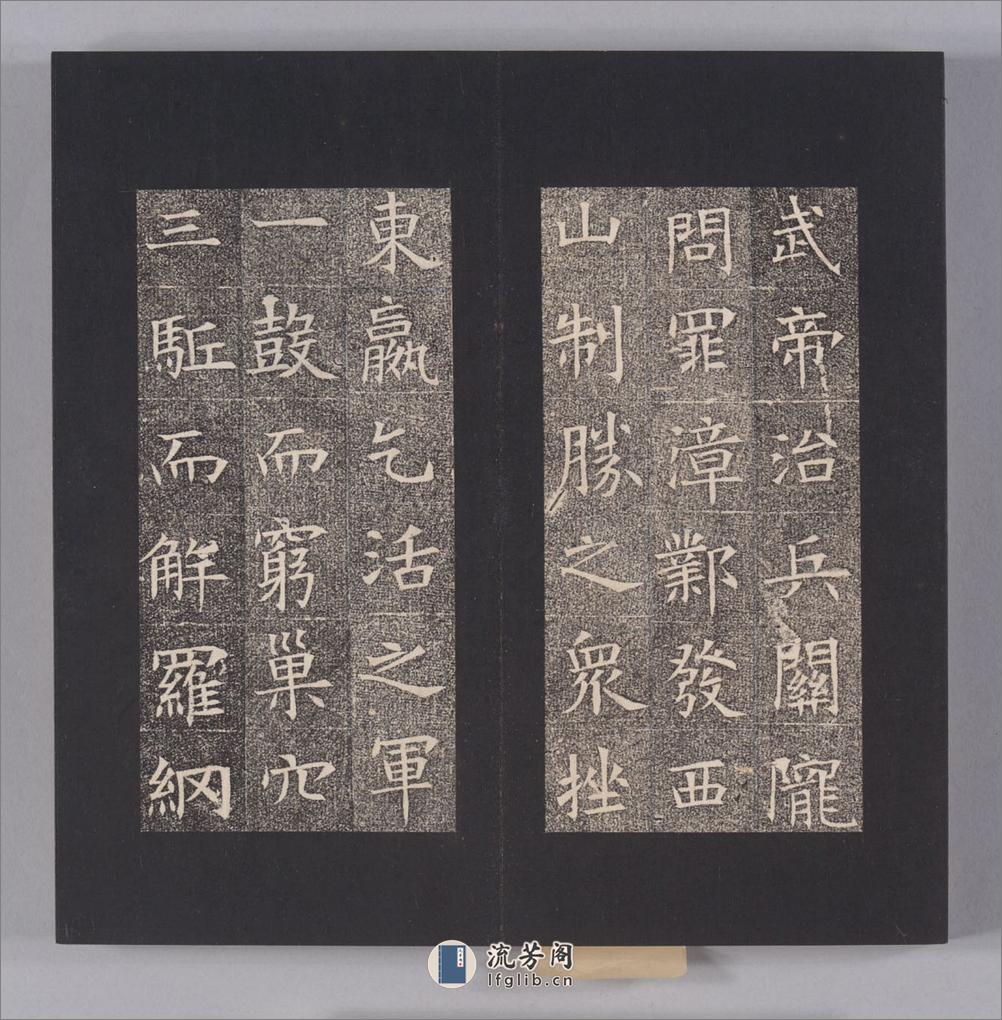 武帝治兵關隴
問罪漳鄴發西
山制勝之眾挫
東羸乞活之軍
一鼓而窮巢穴
三駈而解羅網
流芳阁
lfglib.cn